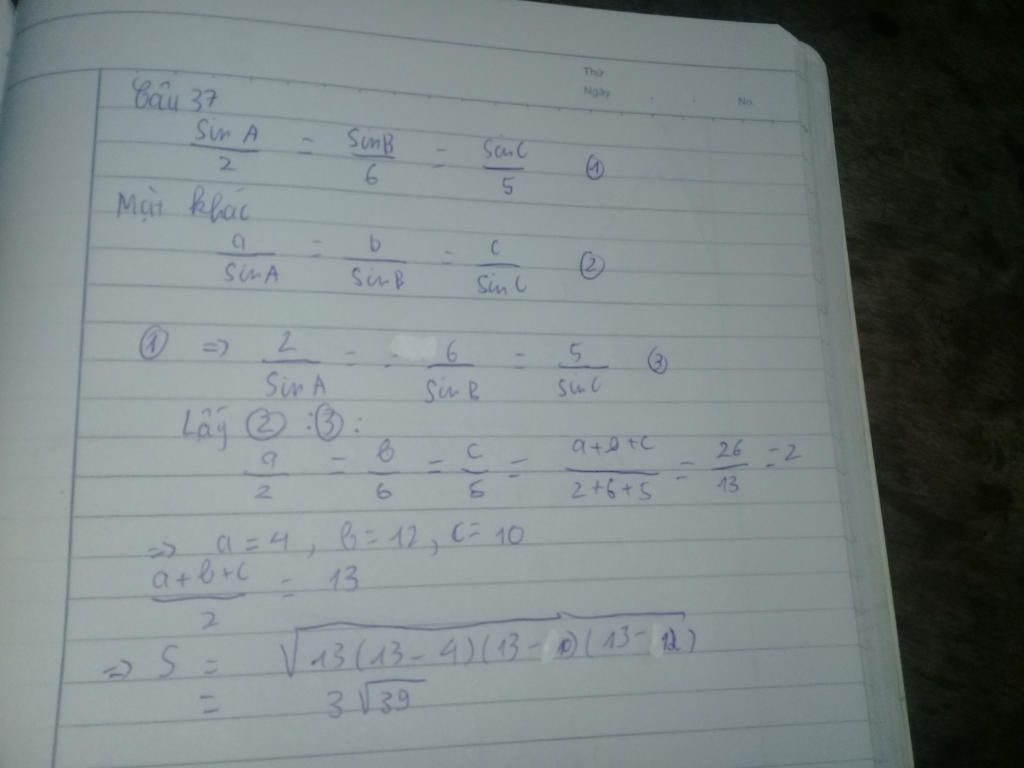 Thứ
Ngày
No.
Câu 37
SinA/2 = SinB/6 = SinC/5 ①
Mặt khác
a/SinA = b/SinB = c/SinC ②
① => 2/SinA = 6/SinB = 5/SinC ③
Lấy ② : ③ :
a/2 = b/6 = c/5 = a+b+c/2+6+5 = 26/13 = 2
=> a = 4, b = 12, c = 10
a+b+c/2 = 13
=> S = √13(13-4)(13-10)(13-12)
= 3√39